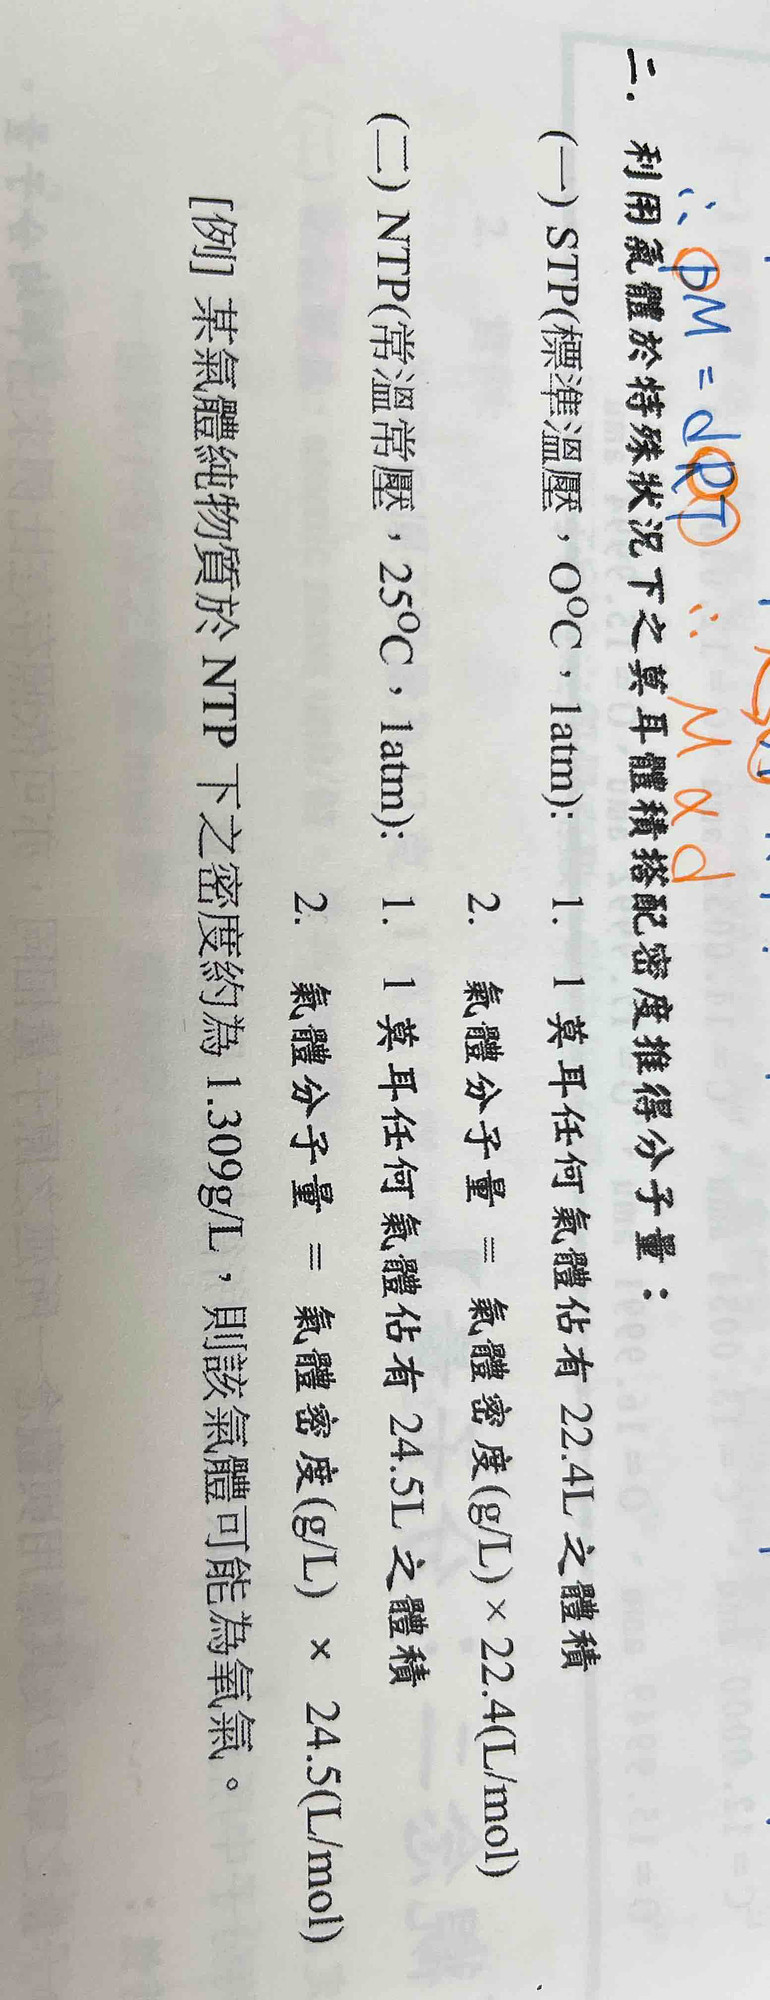 ∴ PM = dRT ∴ M ∝ d
二. 利用氣體於特殊狀況下之莫耳體積搭配密度推得分子量：
(一) STP(標準溫壓，0⁰C，1atm): 1. 1 莫耳任何氣體佔有 22.4L 之體積
2. 氣體分子量 = 氣體密度(g/L) × 22.4(L/mol)
(二) NTP(常溫常壓，25⁰C，1atm): 1. 1 莫耳任何氣體佔有 24.5L 之體積
2. 氣體分子量 = 氣體密度(g/L) × 24.5(L/mol)
[例] 某氣體純物質於 NTP 下之密度約為 1.309g/L，則該氣體可能為氧氣。